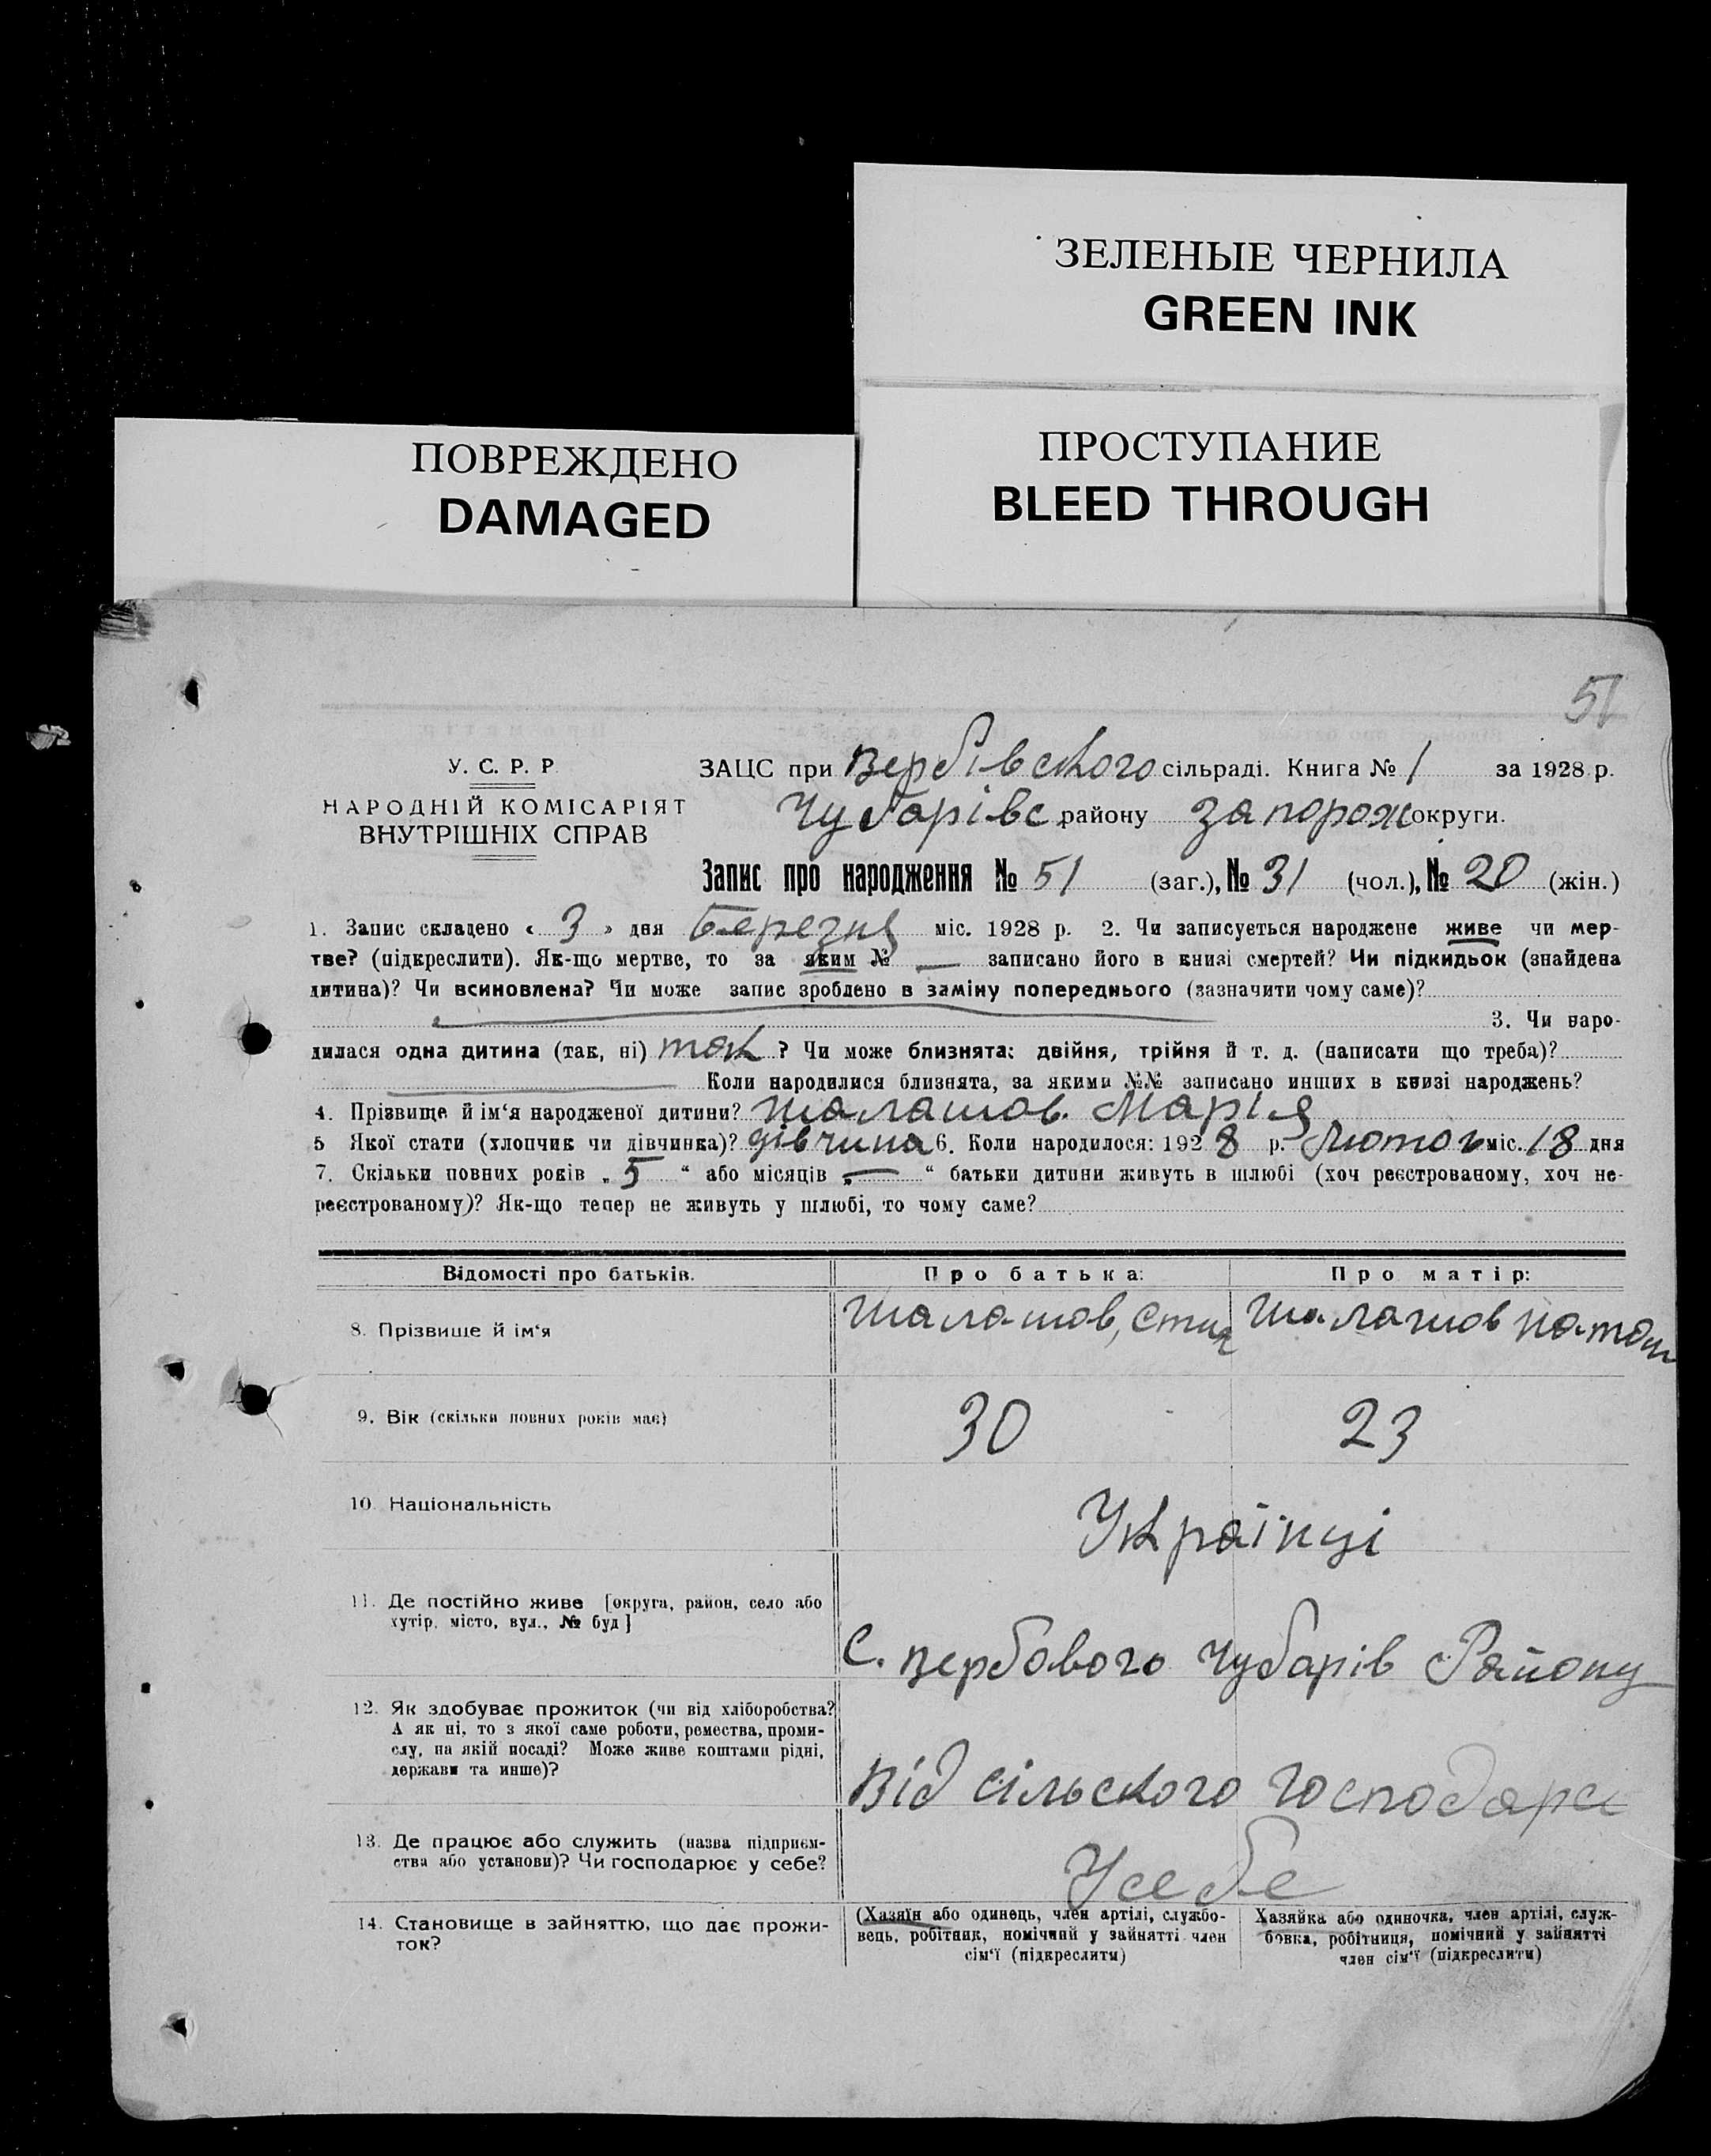 ЗЕЛЕНЫЕ ЧЕРНИЛА
GREEN INK
ПОВРЕЖДЕНО
DAMAGED
ПРОСТУПАНИЕ
BLEED THROUGH
51
У. С. Р. Р.
НАРОДНІЙ КОМІСАРІЯТ
ВНУТРІШНІХ СПРАВ
ЗАЦС при Вербівского сільраді. Книга № 1 за 1928 р.
Чубарівс. району Запорож округи.
Запис про народження № 51 (заг.), № 31 (чол.), № 20 (жін.)
1. Запис складено « 3 » дня Березня міс. 1928 р. 2. Чи записується народжене живе чи мер-
тве? (підкреслити). Як-що мертве, то за яким № — записано його в книзі смертей? Чи підкидьок (знайдена
дитина)? Чи всиновлена? Чи може запис зроблено в заміну попереднього (зазначити чому саме)?
3. Чи наро-
дилася одна дитина (так, ні) так ? Чи може близнята: двійня, трійня й т. д. (написати що треба)?
Коли народилися близнята, за якими №№ записано инших в книзі народжень?
4. Прізвище й ім‘я народженої дитини? Шалашов. Марія
5 Якої стати (хлопчик чи дівчинка)? дівчина 6. Коли народилося: 1928 р. Лютог міс. 18 дня
7. Скільки повних років „ 5 “ або місяців „ — “ батьки дитини живуть в шлюбі (хоч реєстрованому, хоч не-
реєстрованому)? Як-що тепер не живуть у шлюбі, то чому саме?
Відомості про батьків. Про батька: Про матір:
8. Прізвище й ім‘я Шалашов, Шалашов Наташ
9. Вік (скільки повних років має) 30 23
10. Національність Українці
11. Де постійно живе [округа, район, село або
хутір, місто, вул., № буд]
С. Вербового Чубарів Району
12. Як здобуває прожиток (чи від хліборобства?
А як ні, то з якої саме роботи, ремества, проми-
слу, на якій посаді? Може живе коштами рідні,
держави та инше)?
Від сільского господарс
13. Де працює або служить (назва підприєм-
ства або установи)? Чи господарює у себе?
У себе
14. Становище в зайняттю, що дає прожи-
ток?
(Хазяїн або одинець, член артілі, службо-
вець, робітник, помічний у зайнятті член
сім‘ї (підкреслити)
Хазяйка або одиночка, член артілі, служ-
бовка, робітниця, помічний у зайнятті
член сім‘ї (підкреслити)